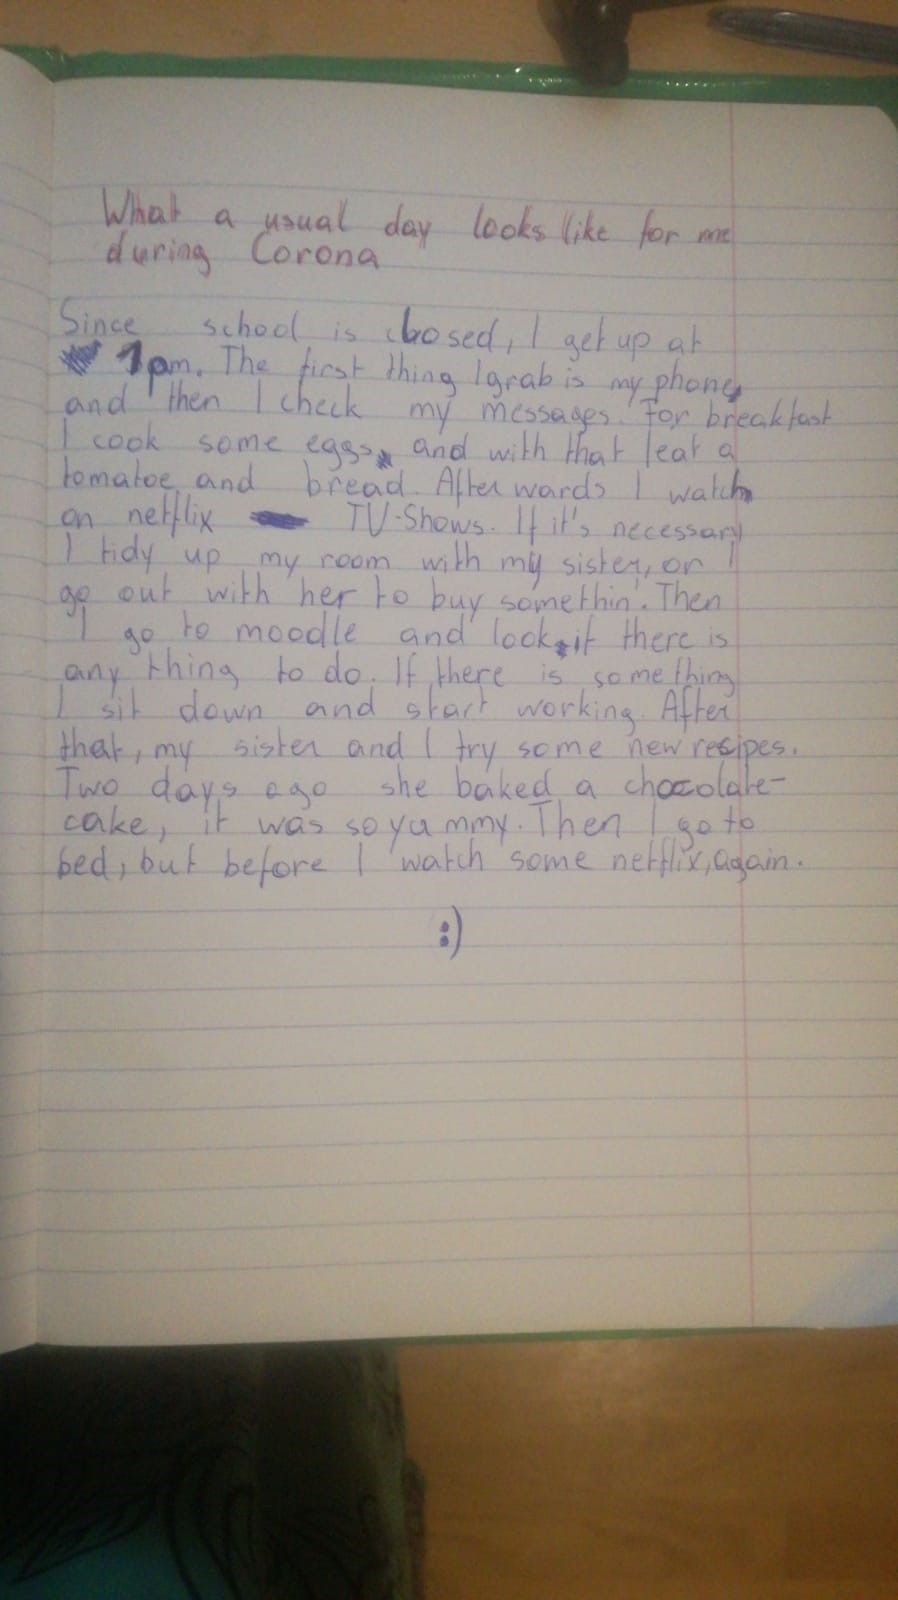 What a usual day looks like for me
during Corona
Since school is closed, I get up at
1pm. The first thing I grab is my phone,
and then I check my messages. For breakfast
I cook some eggs, and with that I eat a
tomatoe and bread. Afterwards I watch
on netflix TV-Shows. If it's necessary
I tidy up my room with my sister, or I
go out with her to buy somethin'. Then
I go to moodle and look if there is
any thing to do. If there is something
I sit down and start working. After
that, my sister and I try some new resipes.
Two days ago she baked a chocolate-
cake, it was so yummy. Then I go to
bed, but before I watch some netflix, again.
:)